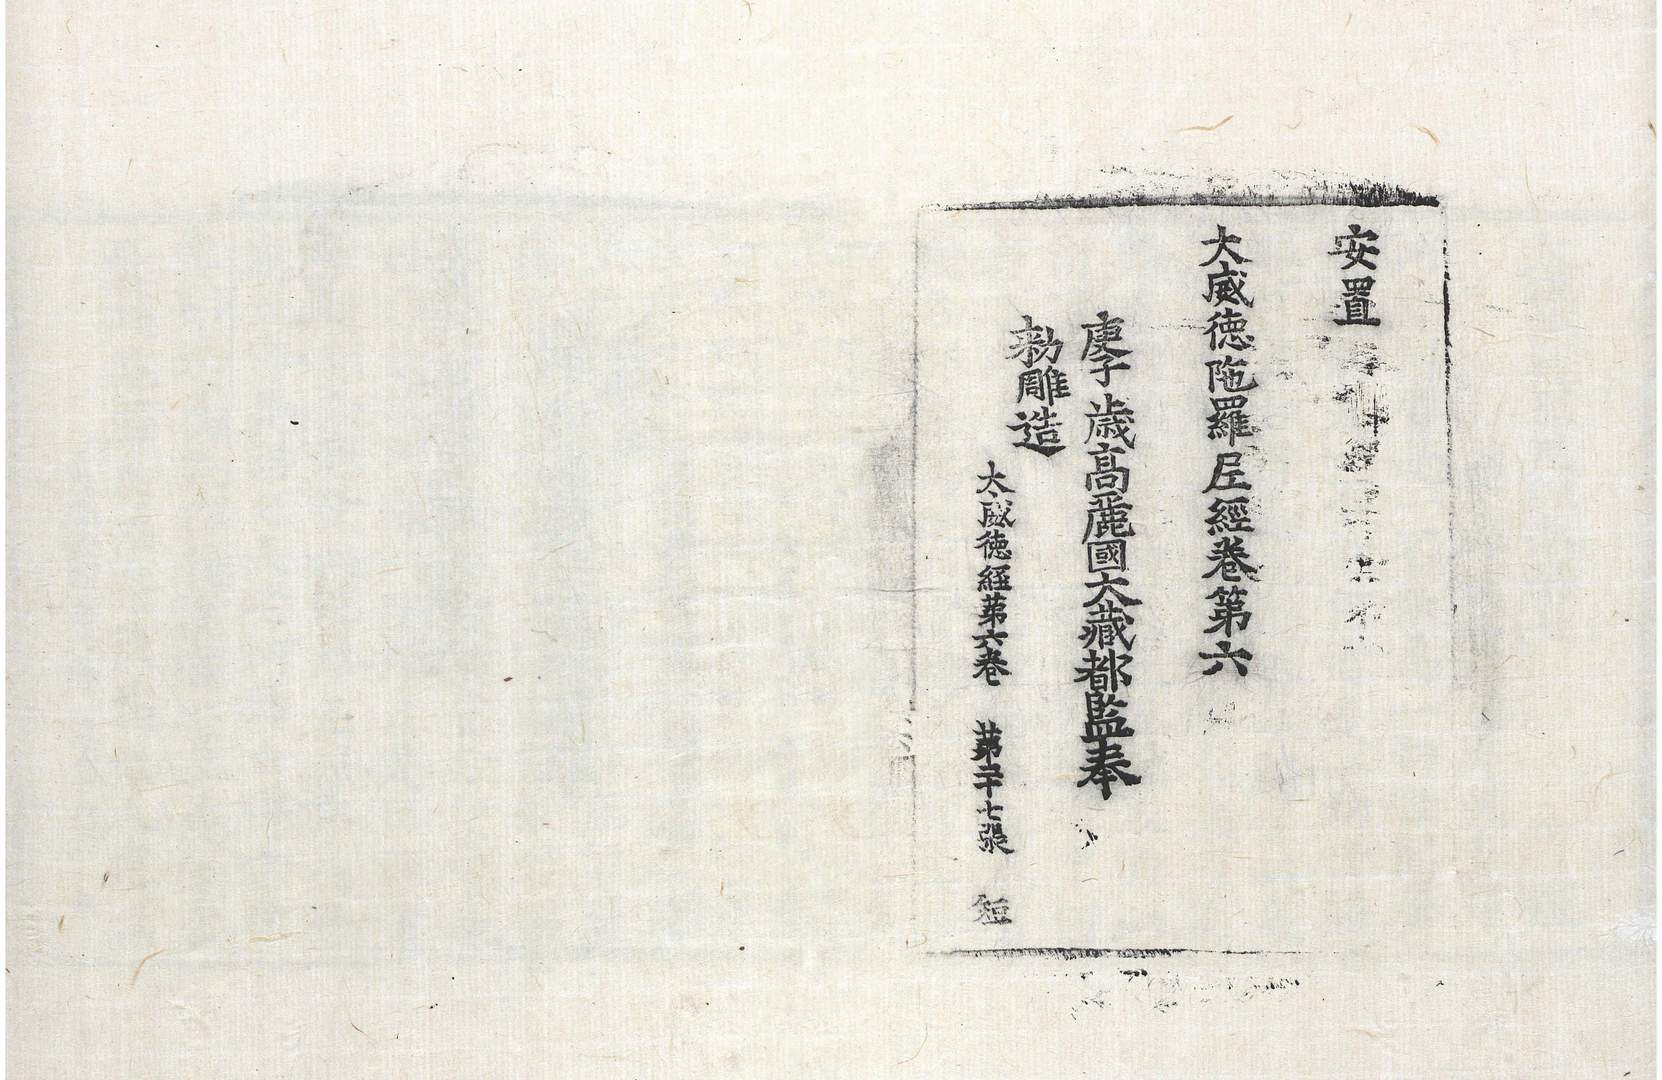 安置
大威徳陁羅尼經卷第六
庚子歳髙麗國大藏都監奉
勑雕造
大威徳經第六卷 第二十七張 短